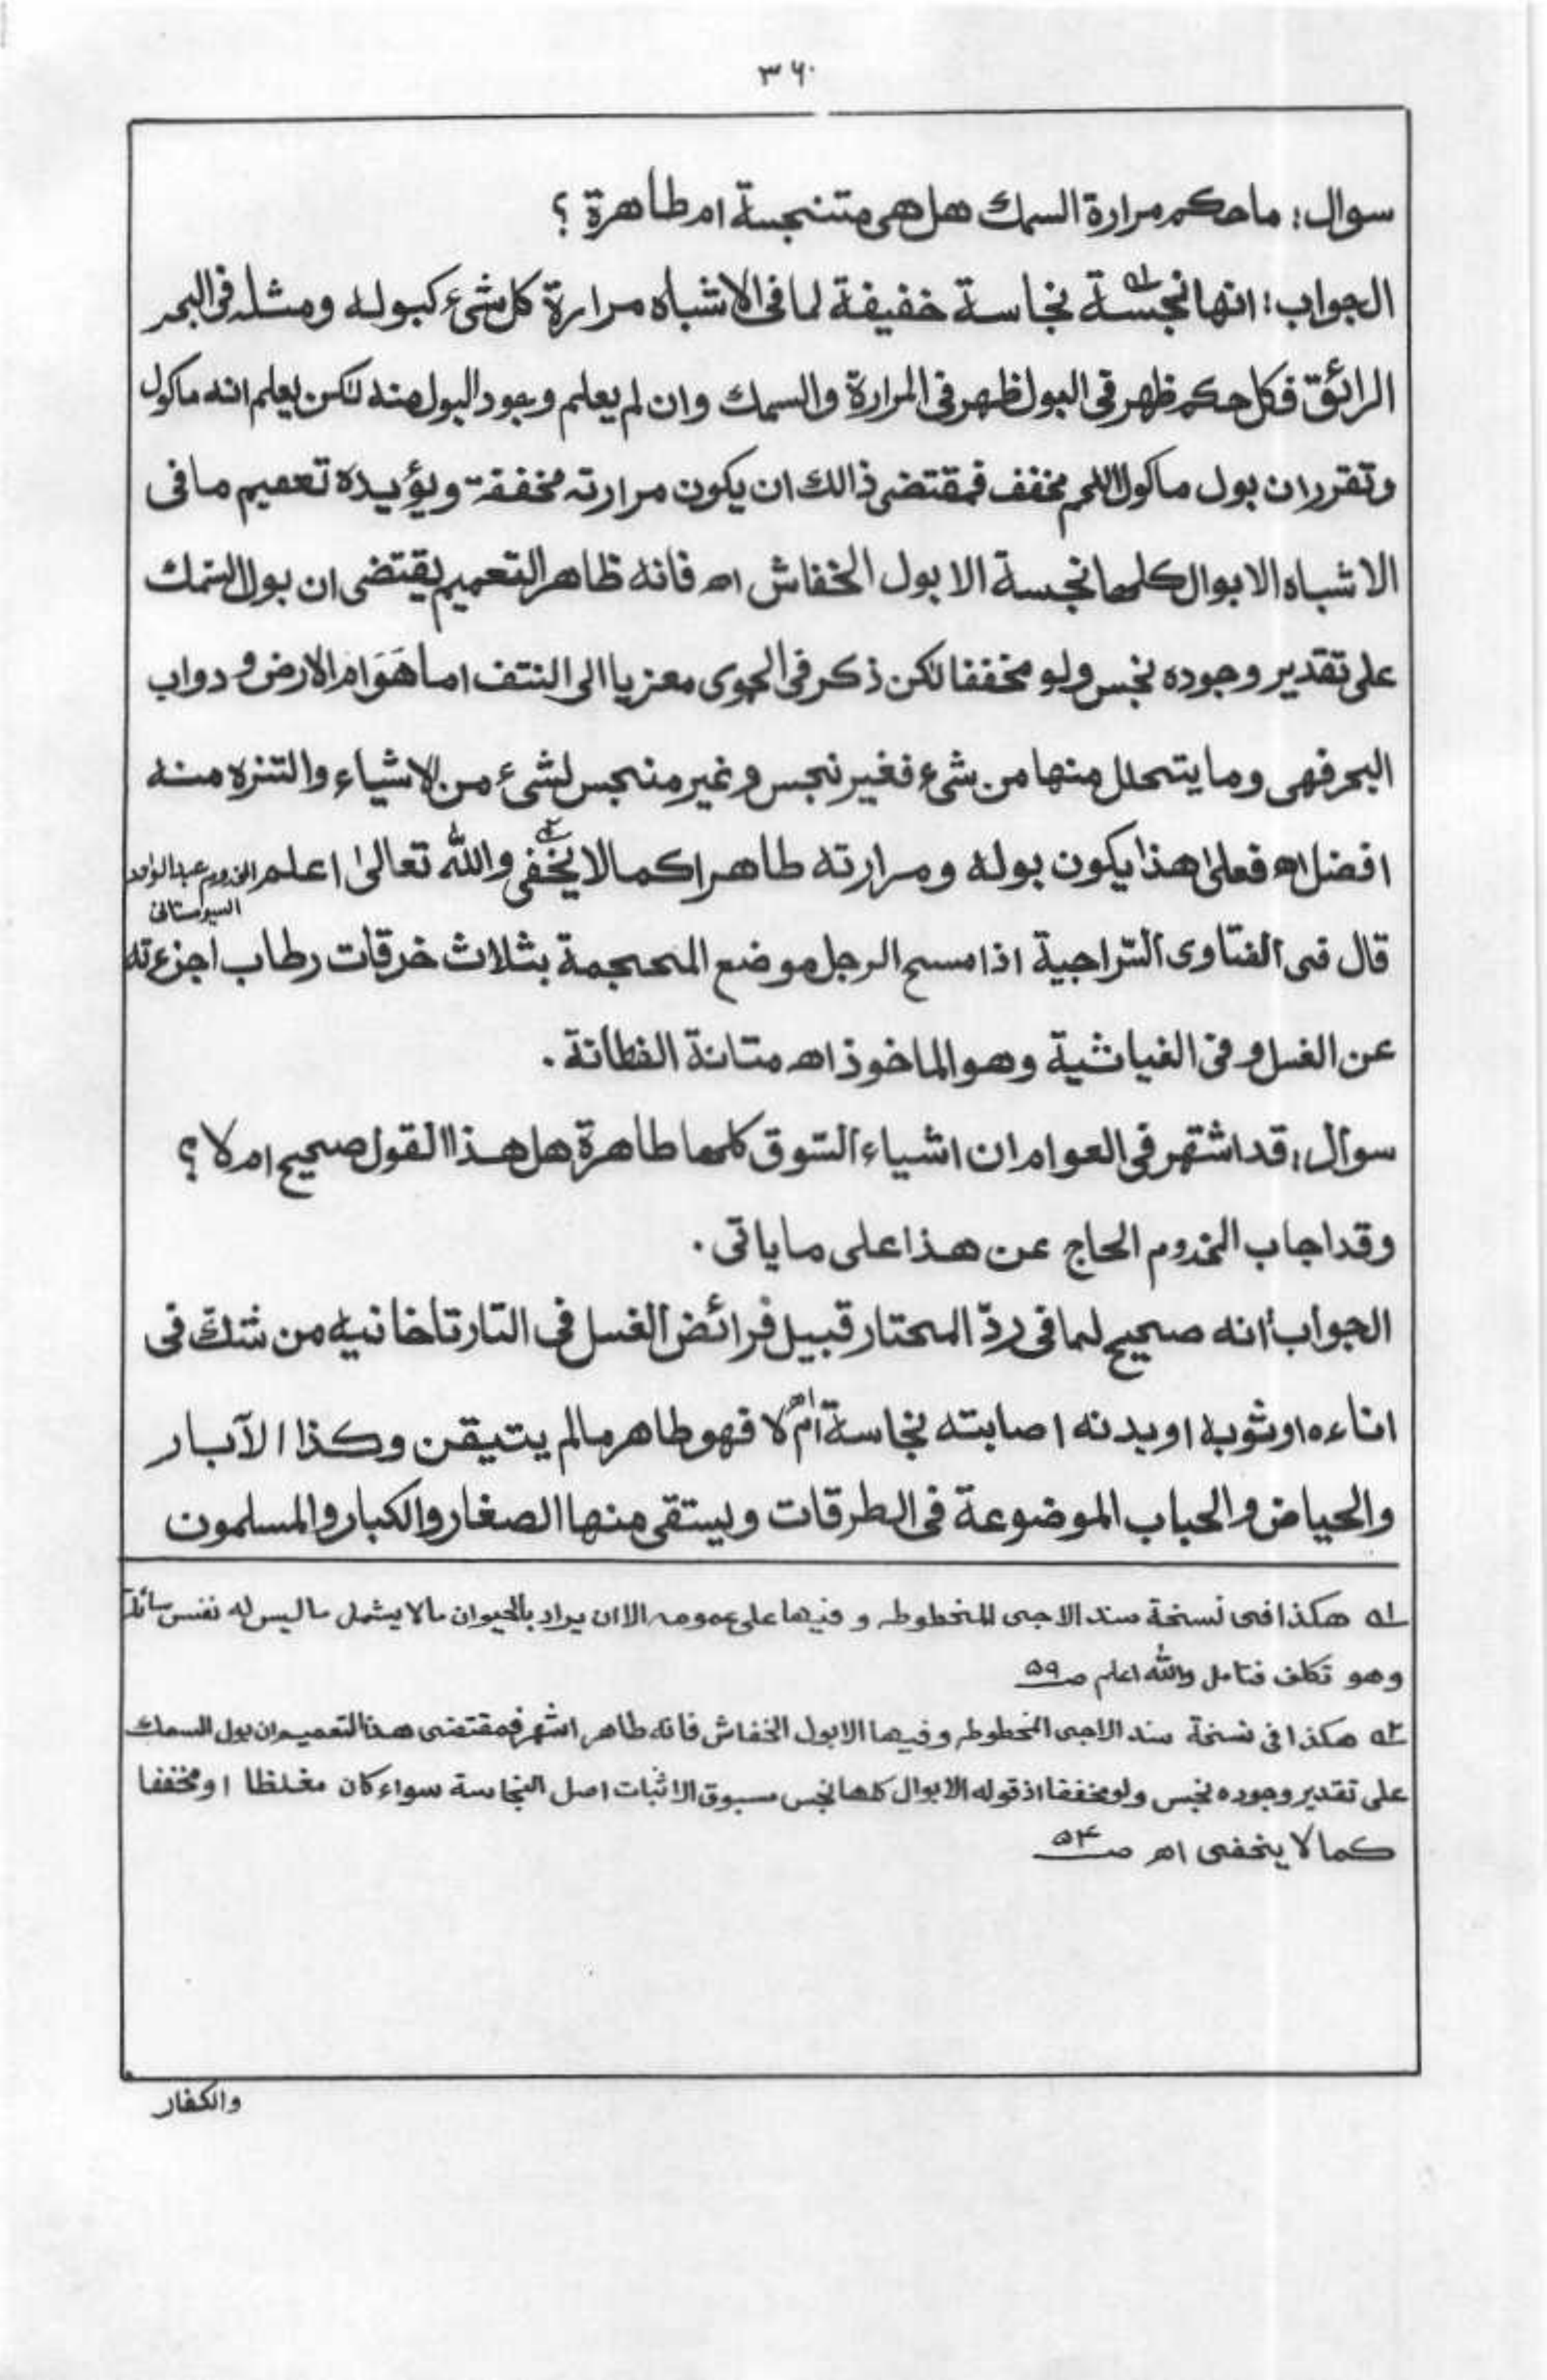 ٣٦٠
سوال: ماحكم مرارة السمك هل هى متنجسة ام طاهرة ؟
الجواب: انها نجسة لـه نجاسة خفيفة لما فى الاشباه مرارة كل شىء كبوله ومثله فى البحر
الرائق فكل حكم ظهر فى البول ظهر فى المرارة والسمك وان لم يعلم وجود البول منه لٰكن يعلم انه ماكول
وتقرر ان بول ماكول اللحم مخفف فمقتضى ذالك ان يكون مرارته مخففة ويؤيده تعميم ما فى
الاشباه الابوال كلها نجسة الا بول الخفاش اھ فانه ظاهر التعميم يقتضى ان بول السّمك
على تقدير وجوده نجس ولو مخففا لٰكن ذكر فى الحموى معزيا الى النتف اما هَوَام الارض و دواب
البحر فهى وما يتحلل منها من شىء فغير نجس و غير منجس لشىء من الاشياء والتنزه منه
افضل اھ فعلىٰ هذا يكون بوله ومرارته طاهرا كما لا يخفى ٢ـه والله تعالىٰ اعلم المخدوم عبدالواحد
السيوستانى
قال فى الفتاوى السّراجية اذا مسح الرجل موضع المحجمة بثلاث خرقات رطاب اجزءته
عن الغسل و فى الغياثية وهو الماخوذ اھ متانة الفطانة ۔
سوال: قد اشتهر فى العوام ان اشياء السّوق كلها طاهرة هل هذا القول صحيح ام لا ؟
وقد اجاب المخدوم الحاج عن هذا على ما ياتى ۔
الجواب: انه صحيح لما فى ردّ المحتار قبيل فرائض الغسل فى التارتاخانيه من شكّ فى
اناءه او ثوبه او بدنه اصابته نجاسة ام لا فهو طاهر مالم يتيقن وكذا الآبار
والحياض والحباب الموضوعة فى الطرقات ويستقى منها الصغار والكبار والمسلمون
لـه هكذا فى نسخة سند الاجى المخطوطه و فيها على عمومه الا ان يراد بالحيوان ما لا يشمل ما ليس له نفس سائلة
وهو تكلف فتامل والله اعلم صـ٥٩
٢ـه هكذا فى نسخة سند الاجى المخطوطه وفيها الا بول الخفاش فانه طاهر اشهر فمقتضى هذا التعميم ان بول السمك
على تقدير وجوده نجس ولو مخففا اذ قوله الابوال كلها نجس مسبوق الاثبات اصل النجاسة سواء كان مغلظا او مخففا
كما لا يخفى اھ صـ٥٤
والكفار